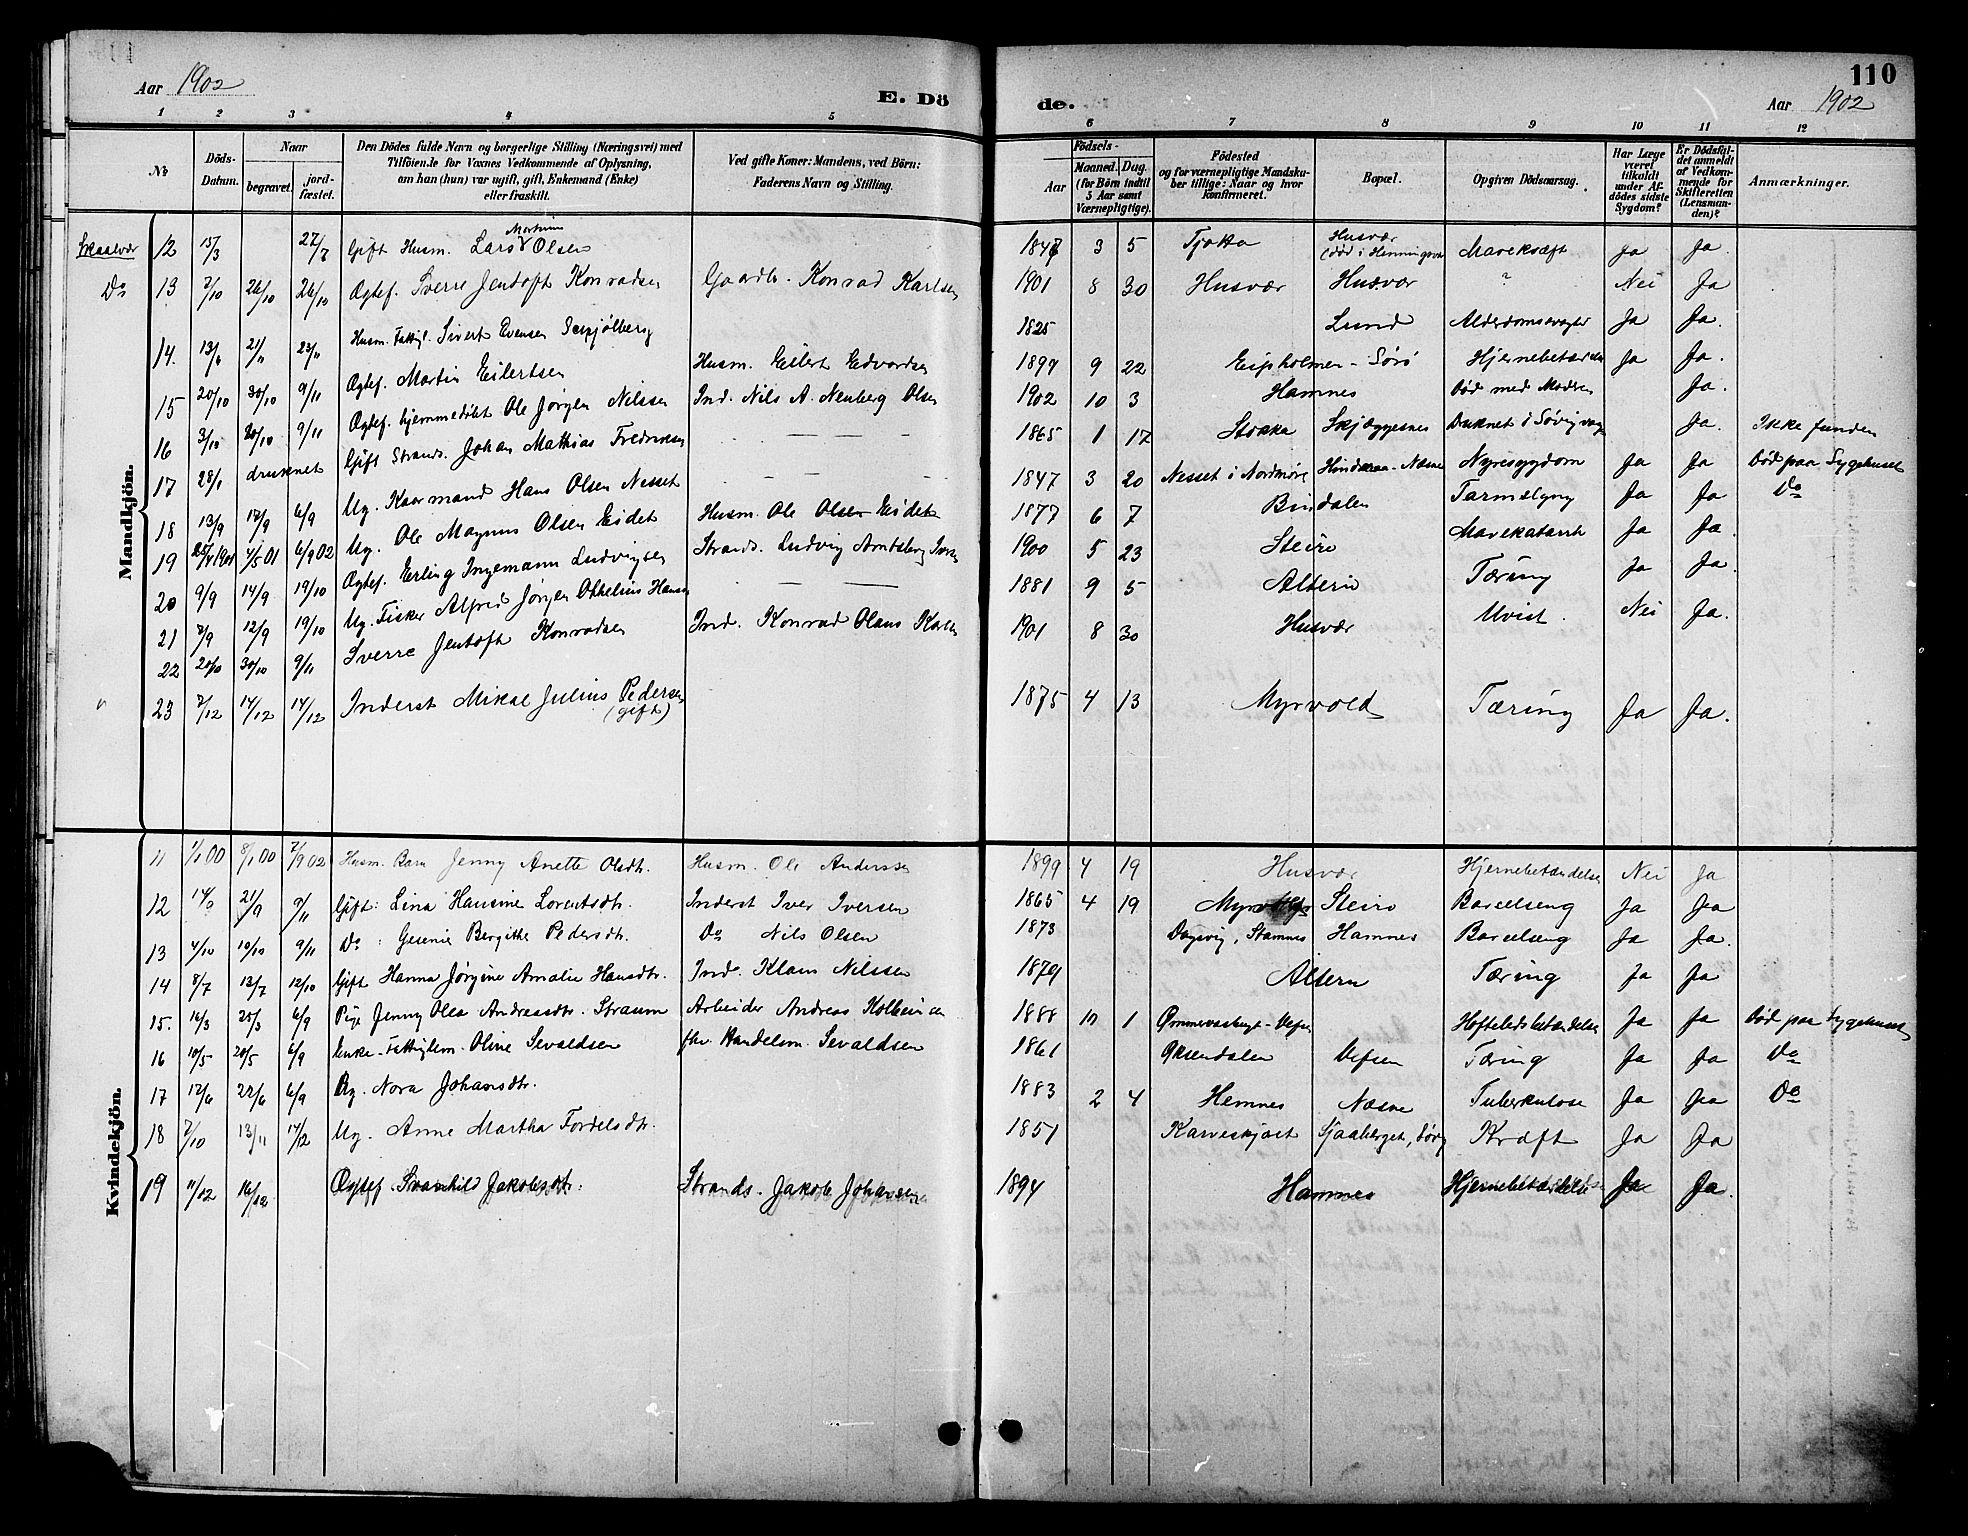 110
Aar 1902
E. Dö
de.
Aar 1902
1 2 3 4 5 6 7 8 9 10 11 12
№
Döds-Datum.
Naar
begravet.
jord-fæstet.
Den Dödes fulde Navn og borgerlige Stilling (Næringsvei) med
Tilföiende for Voxnes Vedkommende af Oplysning,
om han (hun) var ugift, gift, Enkemand (Enke)
eller fraskilt.
Ved gifte Koner: Mandens, ved Börn:
Faderens Navn og Stilling.
Födsels-
Aar
Maaned. Dag.
(for Börn indtil
5 Aar samt
Værnepligtige).
Födested
og for værnepligtige Mandsku-
ber tillige: Naar og hvor
konfirmeret.
Bopæl.
Opgiven Dödsaarsag.
Har Læge
været
tilkaldt
under Af-
dödes sidste
Sygdom?
Er Dödsfal-
det anmeldt
af Vedkom-
mende for
Skifteretten
(Lensman-
den)?
Anmærkninger.
Mandkjön.
Skaalvær 12 15/3 27/7 Gift Husm. Lars Martinus Olsen 1847 3 5 Tjøtta Husvær (død i Henningsvær Mavekræft Ja Ja.
Do 13 2/10 26/10 26/10 Ægtef. Sverre Jentoft Konradsen Gaardb. Konrad Karlsen 1901 8 30 Husvær Husvær ? Nei Ja
14. 13/11 21/11 23/11 Husm. Fattigl. Sivert Evensen 1825 Lund Ja Ja.
15 20/10 30/10 9/11 Ægtef. Martin Eilertsen Husm. Eilert Edvardsen 1899 9 22 Eipholmen - Sørø Ja Ja.
16 3/10 20/10 9/11 Ægtef. hjemmedøbt Ole Jørgen Nilssen Ind. Nils A. Neuberg Olsen 1902 10 3 Hamnes Død med Moderen Ja.
17 28/1 druknet Gift Strands. Johan Mathias Fredriksen — — 1865 1 17 Stokka Skjæggesnes Druknet i Ja. Ikke funden
18 13/9 17/9 6/9 Ug. Kaarmand Hans Olsen Nesset — — 1847 3 20 Nesset i Nordmøre Nyresygdom Ja Ja Død paa Sygehuset
19 25/4 1901 4/5 01 6/9 02 Ug. Ole Magnus Olsen Eidet Husm. Ole Olsen Eidet 1877 6 7 Bindalen Ja Ja Do
20 9/9 14/9 19/10 Ægtef. Erling Ingemann Ludvigsen Strands. Ludvig Arntsberg 1900 5 23 Steiro Mavekatarrh Ja Ja
21 7/9 12/9 19/10 Ug. Fisker Alfred Jørgen Othelius Hansen — — 1881 9 5 Altern Tæring Ja Ja.
22 20/10 30/10 9/11 Sverre Jentoft Konradsen Ind. Konrad Olaus Karlsen 1901 8 30 Husvær Uvist. Nei Ja.
23 7/12 14/12 14/12 Inderst Mikal Julius Pedersen (gift) 1875 4 13 Myrvold Tæring Ja Ja.
Kvindekjön.
11 1/1 00 8/1 00 7/9 02 Husm. Barn Jenny Anette Olsdtr. Husm. Ole Anderssen 1899 4 19 Husvær Hjernebetændelse Nei Ja
12 14/9 21/9 9/11 Gift: Lina Hansine Lorentsdtr. Inderst Iver Iversen 1865 4 19 Steiro Barselseng Ja Ja
13 4/10 10/10 9/11 Do: Gesenie Bergitte Pedersdtr. Do Nils Olsen 1873 Dagsvig, Stamnes Hamnes Barselseng Ja Ja.
14 8/7 13/7 12/10 Gift Hanna Jørgine Amalie Hansdtr. Ind. Klaus Nilssen 1879 Altern Tæring Ja Ja
15. 16/3 25/3 6/9 Pige Jenny Olea Andreasdtr. Straum Arbeider Andreas 1888 10 1 Hofteledsbetændelse Ja Ja Død paa Sygehuset
16 10/5 20/5 6/9 Enke - Fattiglem. Oline Sevaldsen fhv. Handelsm. Sevaldsen 1861 Øksendalen Vefsen Tæring Ja Ja Do
17 17/6 22/6 6/9 Ug. Nora Johansdtr. 1883 2 4 Hemnes Næsne Tuberkulose Ja Ja Do
18 7/10 13/11 14/12 Ug. Anne Martha Fordelsdtr. 1851 Karveskjæret Kræft Ja Ja
19 11/12 16/12 Ægtef. Svanhild Jakobsdtr. Strands. Jakob Johansen 1894 Hamnes Hjernebetændelse Ja Ja.